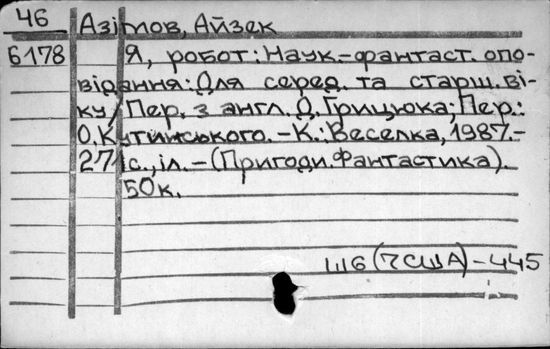 46 Азімов, Айзек
6178 Я, робот: Наук.-фантаст. опо-
відання: Для серед. та старш. ві-
ку/Пер. з англ. Д. Грицюка; Пер.:
О. Кутинського. -К.: Веселка, 1987.-
271с., іл. -(Пригоди. Фантастика).
50к.
Ш6(7США)-445